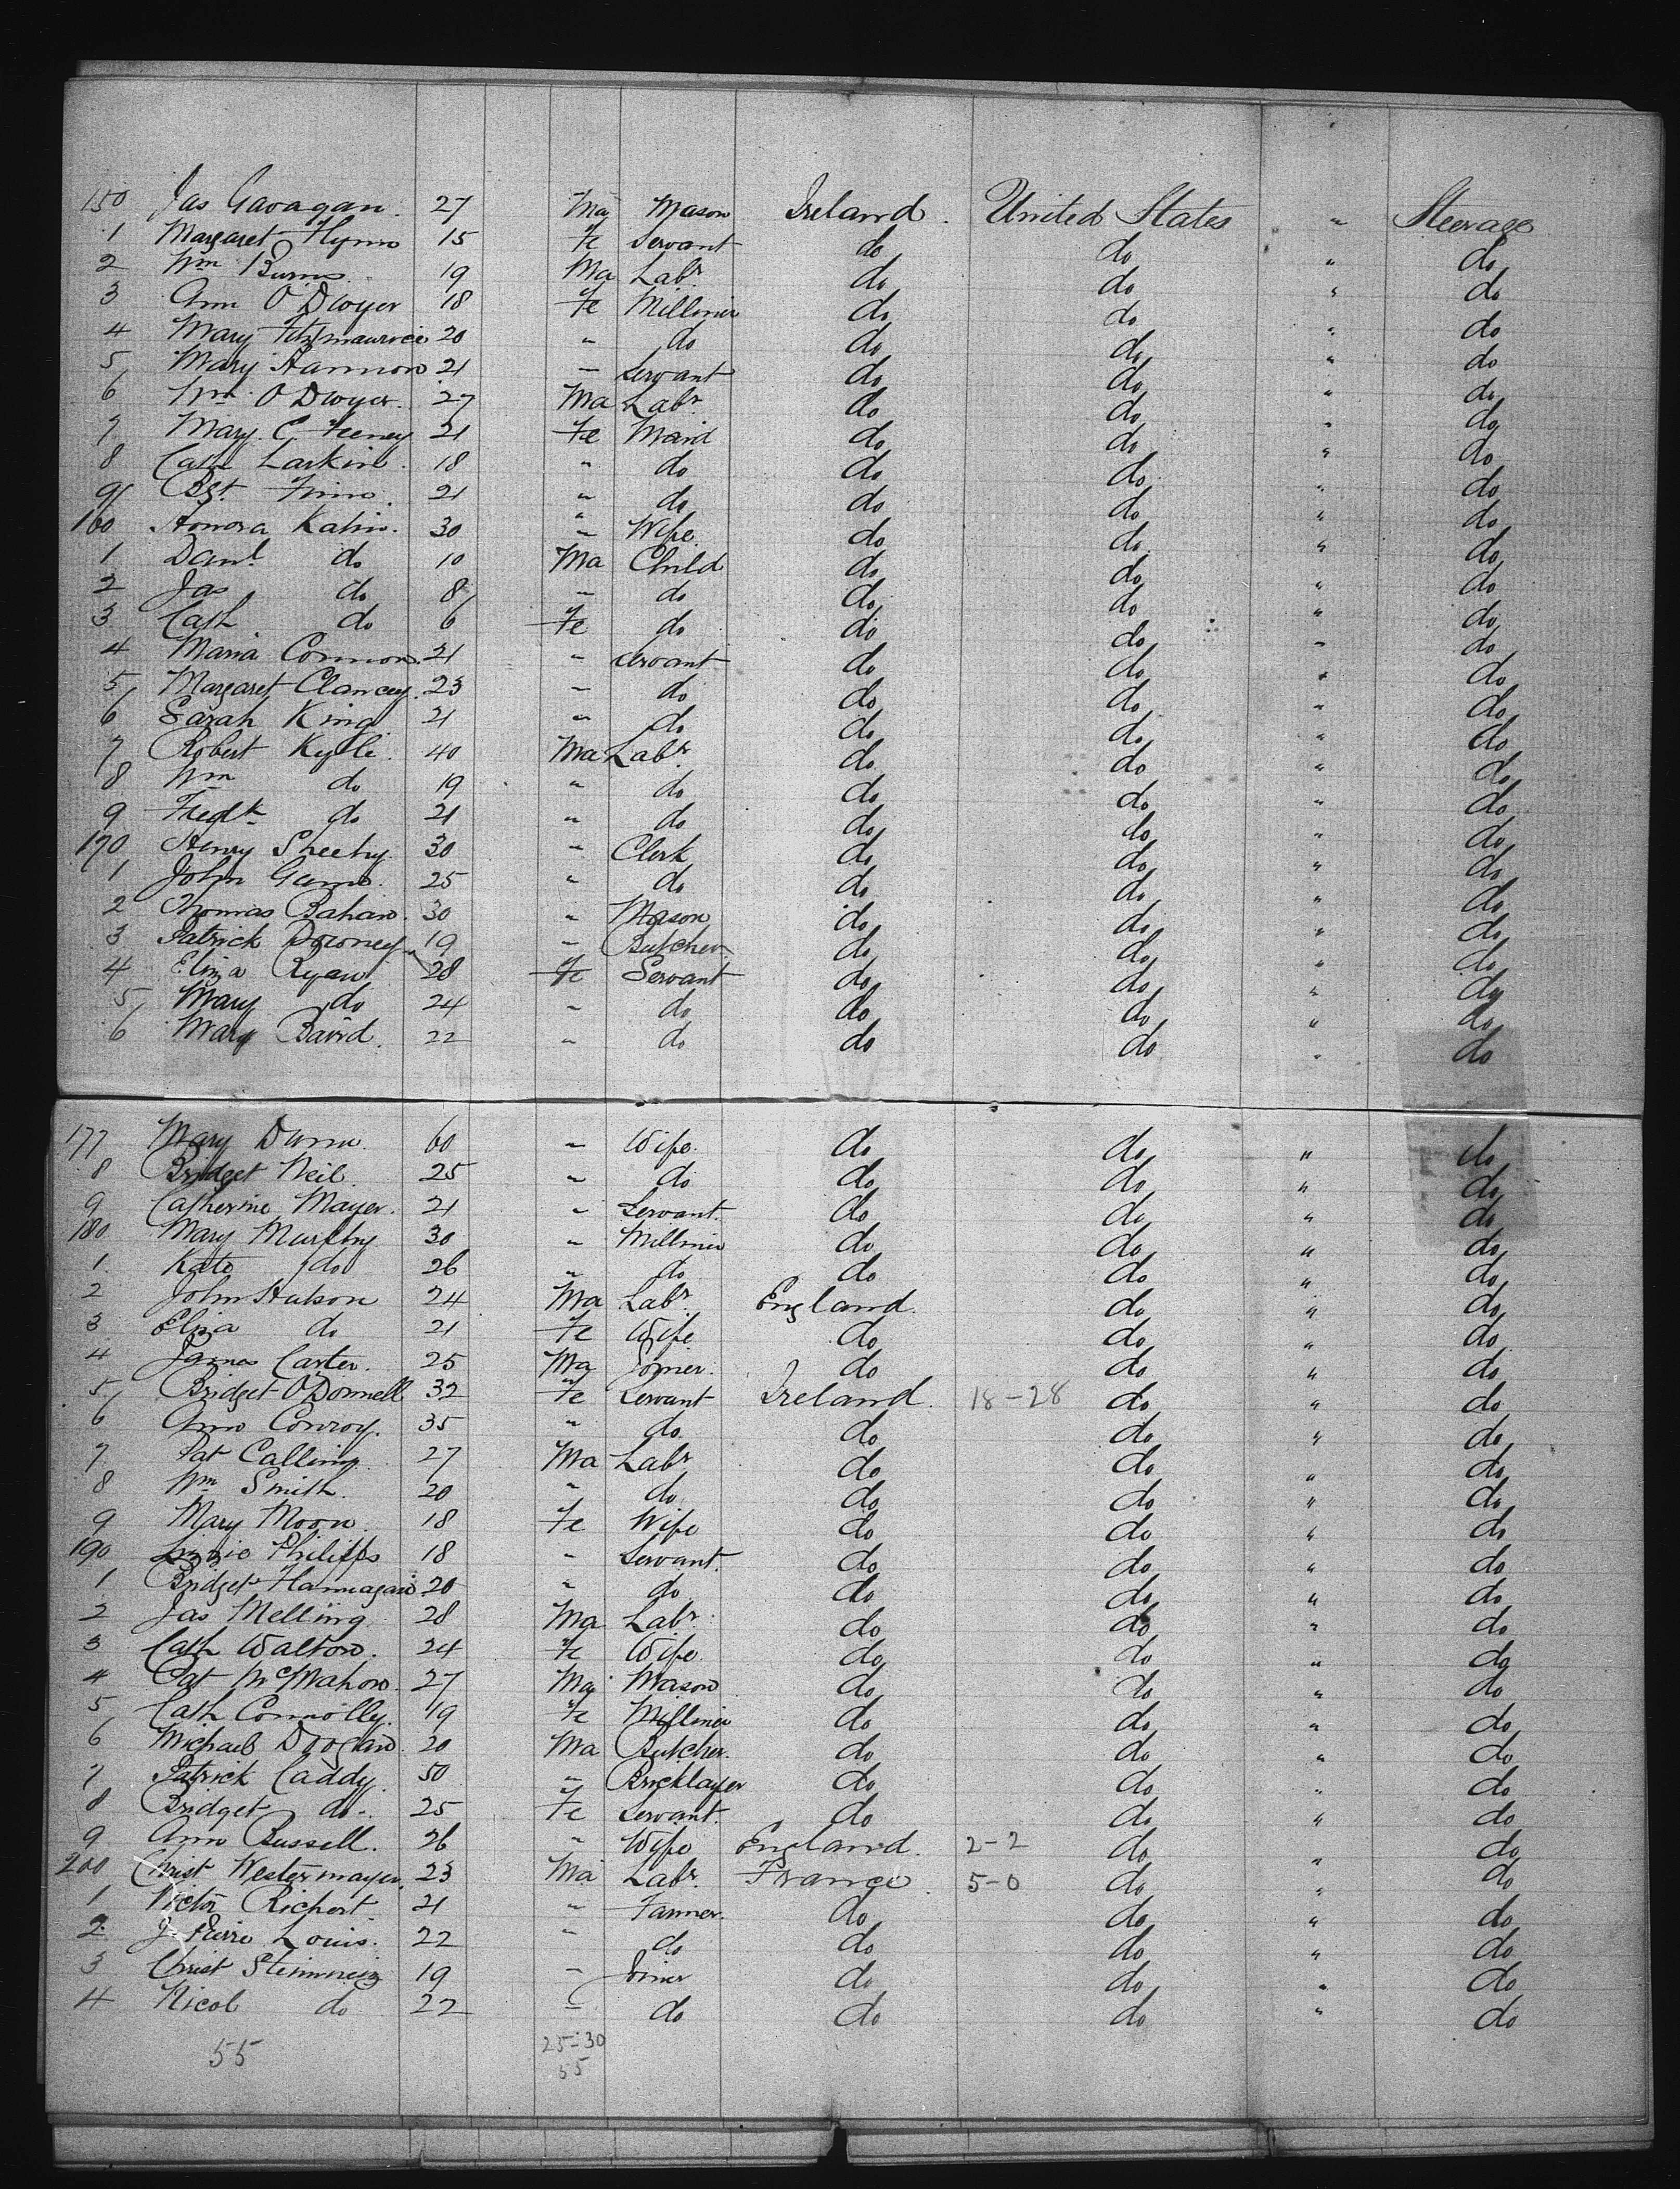 150 Jas Gavagan. 27 Ma Mason Ireland. United States " Steerage
1 Margaret Flynn 15 Fe Servant do do " do
2 Wm Burns 19 Ma Labr. do do " do
3 Ann O Dwyer 18 Fe Milliner do do " do
4 Mary Fitzmaurice 20 " do do do " do
5 Mary Hannon 21 " Servant do do " do
6 Wm O Dwyer. 27 Ma Labr. do do " do
7 Mary C. Feeney 21 Fe Maid do do " do
8 Cath Larkin. 18 " do do do " do
9 Bgt. Finn. 21 " do do do " do
160 Honora Kahin. 30 " Wife. do do " do
1 Danl. do 10 Ma Child do do " do
2 Jas do 8 " do do do " do
3 Cath do 6 Fe do do do " do
4 Maria Connors. 21 " Servant do do " do
5 Margaret Clancey. 23 " do do do " do
6 Sarah King 21 " do do do " do
7 Robert 40 Ma Labr. do do " do
8 Wm do 19 " do do do " do
9 Fredk do 21 " do do do " do
170 Henry Sheehy. 30 " Clerk do do " do
1 John 25 " do do do " do
2 Thomas Bahan. 30 " Mason do do " do
3 Patrick Downey 19 " Butcher do do " do
4 Eliza Ryan 28 Fe Servant do do " do
5 Mary do 24 " do do do " do
6 Mary Baird. 22 " do do do " do
177 Mary Dunn. 60 " Wife. do do " do
8 Bridget Neil. 25 " do do do " do
9 Catherine Mayer. 21 " Servant. do do " do
180 Mary Murphy 30 " Milliner do do " do
1 Kate do 26 " do do do " do
2 John Hulson 24 Ma Labr. England. do " do
3 Eliza do 21 Fe Wife do do " do
4 James Carter. 25 Ma Joiner. do do " do
5 Bridget O'Donnell 32 Fe Servant Ireland. 18-28 do " do
6 Ann Conroy. 35 " do do do " do
7 Pat Calling. 27 Ma Labr do do " do
8 Wm Smith. 20 " do do do " do
9 Mary Moon. 18 Fe Wife do do " do
190 Lizzie Philipps 18 " Servant. do do " do
1 Bridget Hannagan 20 " do do do " do
2 Jas Melling 28 Ma Labr. do do " do
3 Cath Walton. 24 Fe Wife. do do " do
4 Pat McMahon. 27 Ma Mason do do " do
5 Cath Connolly. 19 Fe Milliner do do " do
6 Michael Doogan. 20 Ma Butcher. do do " do
7 Patrick Caddy. 50 " Bricklayer do do " do
8 Bridget do. 25 Fe Servant. do do " do
9 Ann Russell. 26 " Wife England. 2-2 do " do
200 Christ Westermayer. 23 Ma Labr. France. 5-0 do " do
1 Victor Richert 21 " Farmer. do do " do
2 J. Pierre Louis. 22 " do do do " do
3 Christ 19 " Joiner do do " do
4 Nicol do 22 " do do do " do
55 25-30
55